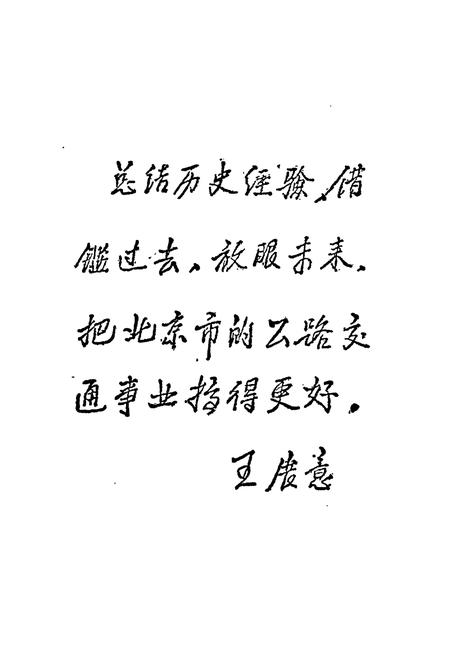 总结历史经验,借
鑑过去、放眼未来、
把北京市的公路交
通事业搞得更好.
王 意